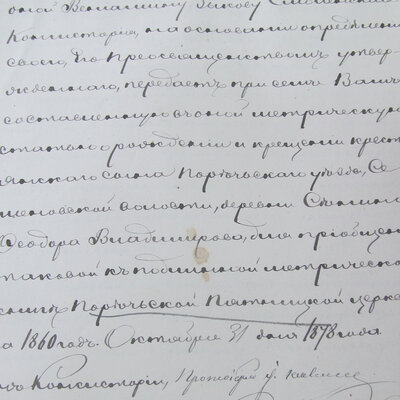 Консисторія, на основаніи опредѣленія
своего, Его Преосвященствомъ утвер-
жденнаго, передаетъ при семъ Вамъ
составленную вновь метрическую
статью о рожденіи и крещеніи крест
янскаго сына Порѣчьскаго уѣзда, Се
меновской волости, деревни
Ѳеодора Владимірова, для пріобщен
таковой къ подлинной метрическо
Порѣчьской Пятницкой церкв
на 1860 годъ. Октября 31 дня 1878 года
Консисторіи, Протоіерей